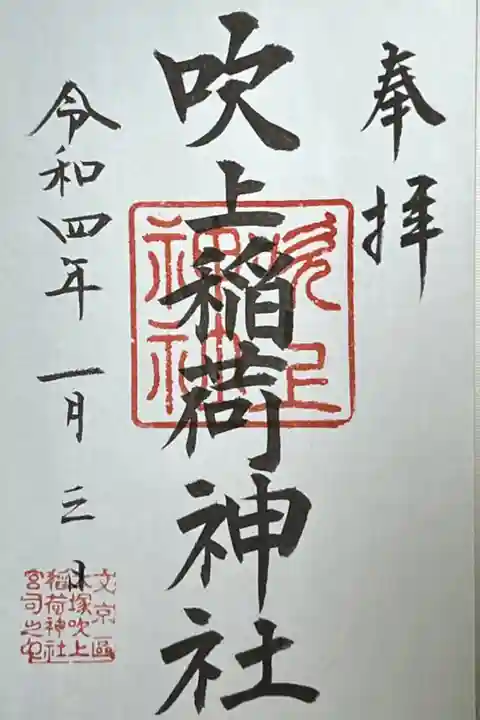 奉拝
吹上稲荷神社
令和四年一月三日
吹上
神社
文京區
大塚吹上
稲荷神社
宮司之印